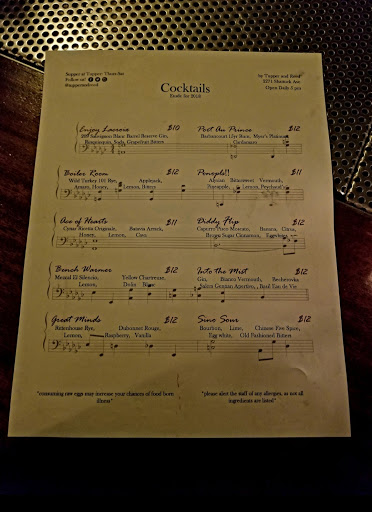 Cocktails
by Tupper and Reed
2271 Shattuck Ave
Open Daily 5 pm
Follow us!
@tupperandreed
Enjoy Lacroix $10
Sauvignon Blanc Barrel Reserve Gin,
Soda, Grapefruit Bitters
Port Au Prince $12
Barbancourt
Myer's Platinum
Boiler Room $12
Wild Turkey 101 Rye, Applejack,
Honey, Lemon, Bitters
$11
Bitter, Vermouth,
Pineapple, Lemon, Peychaud's
Ace of Hearts $11
Honey, Lemon, Cava
Diddy Flip $12
Capurro Pisco Moscato, Banana, Citrus,
Sugar Cinnamon, Eggwhite
Bench Warmer $12
Mezcal El Silencio, Yellow Chartreuse,
Lemon,
Into the Mist $12
Gin, Bianco Vermouth, Becherovka
Salers Gentian Aperitive, Basil Eau de Vie
Great Minds $12
Rittenhouse Rye, Dubonnet Rouge,
Lemon, Raspberry, Vanilla
Sino Sour $12
Bourbon, Lime, Chinese Five Spice,
Egg white, Old Fashioned Bitters
"consuming raw eggs may increase your chances of food born
illness"
"please alert the staff of any allergies, as not all
ingredients are listed"